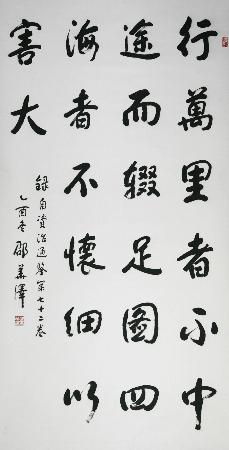 行萬里者不中
途而辍足圖四
海者不懷細以
害大
錄自資治通鑒第七十二卷
乙酉冬 邵華澤